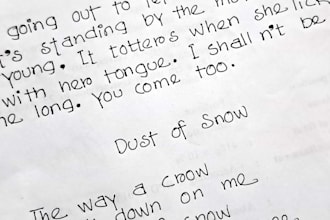 going out to
t's standing by the
young. It totters when she lick
with hero tongue. I shall n't be
ne long. You come too.
Dust of Snow
The way a crow
down on me
snow